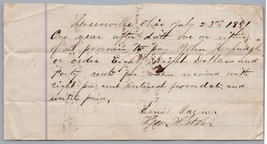 Greenville Ohio July 23rd 1881
One year after date we or either
of us promise to pay John
or order Eighty Eight Dollars and
Forty cents for value received with
eight per cent interest from date, and
until paid,
Daniel Wagner